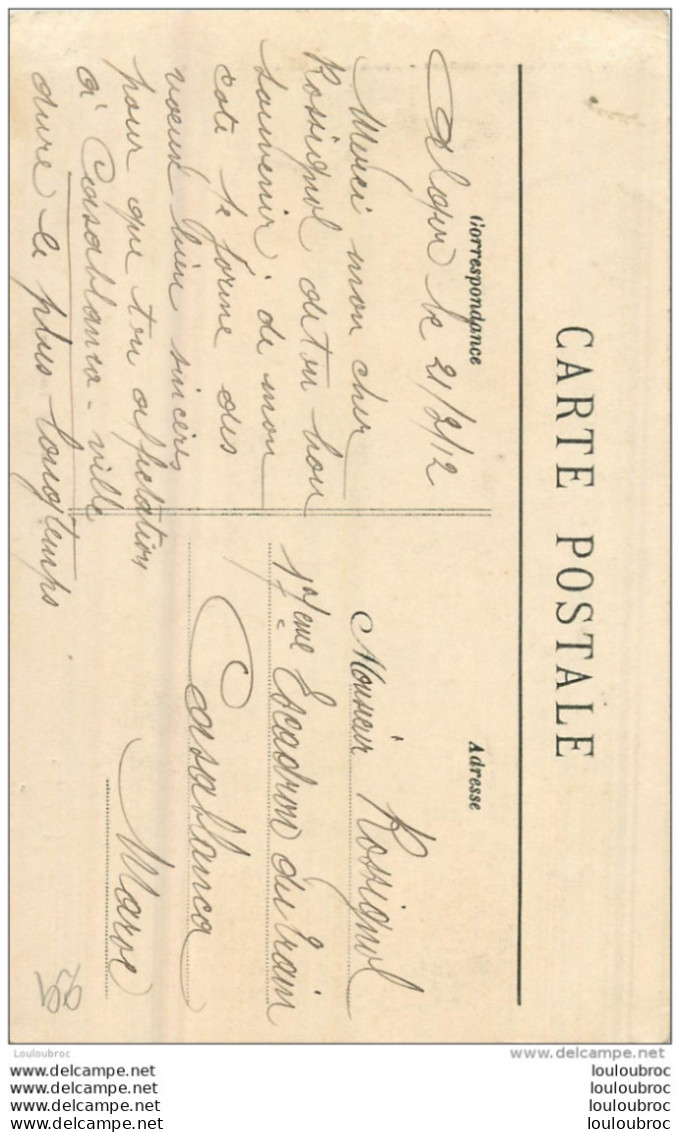 CARTE POSTALE
Correspondance
Adresse
Alger le 21/2/12
Merci mon cher
Rossignol de ton bon
souvenir. de mon
coté je forme des
vœux bien sincères
pour que ton afectation
à Casablanca-ville
dure le plus longtemps
Monsieur Rossignol
17eme Escadron du Train
Casablanca
Maroc
Louloubroc
delcampe.net
www.delcampe.net louloubroc
www.delcampe.net louloubroc
www.delcampe.net louloubroc
www.delcampe.net louloubroc